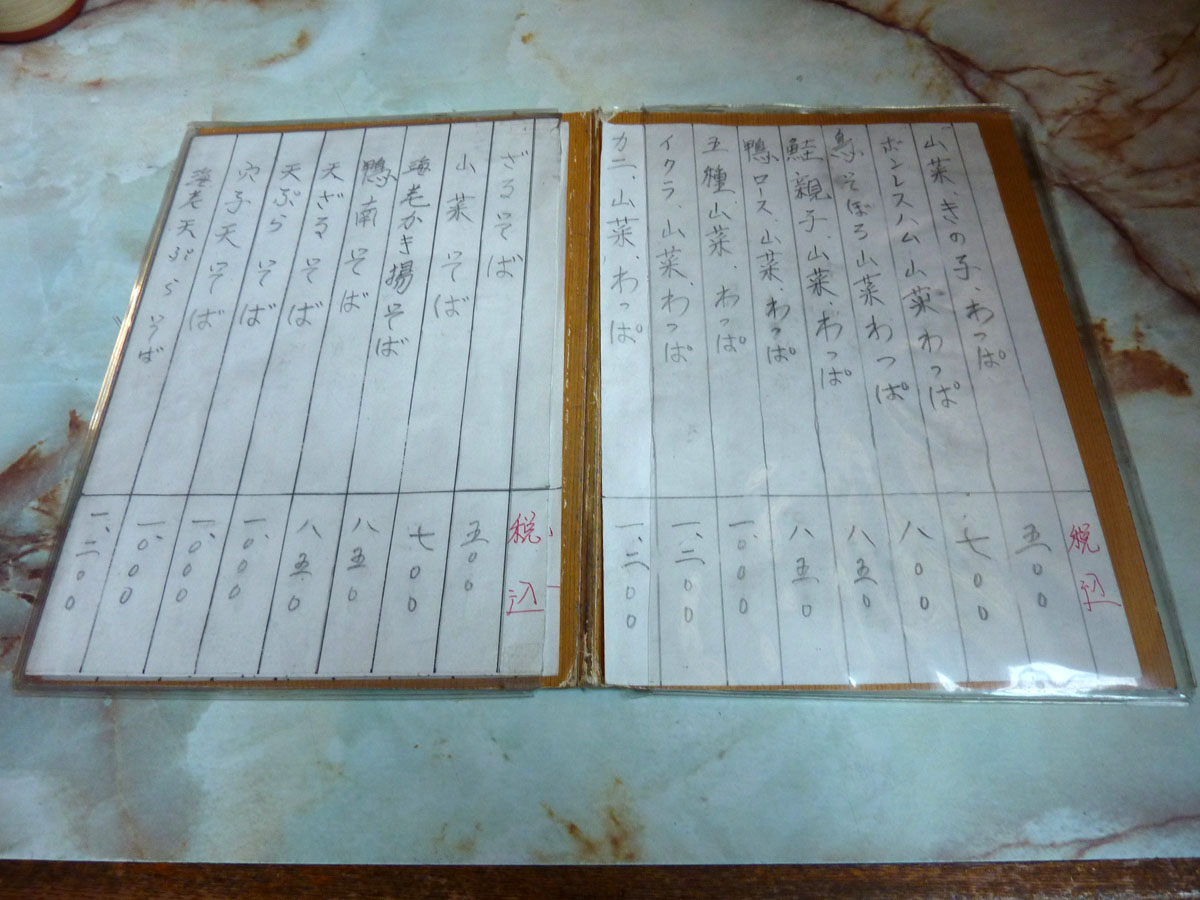 税込
山菜、きの子、わっぱ 五〇〇
ボンレスハム山菜わっぱ 七〇〇
鳥そぼろ山菜わっぱ 八〇〇
鮭親子、山菜、わっぱ 八五〇
鴨ロース、山菜、わっぱ 八五〇
五種山菜、わっぱ 一、〇〇〇
イクラ、山菜、わっぱ 一、二〇〇
カニ、山菜、わっぱ 一、二〇〇
税込
ざるそば 五〇〇
山菜そば 七〇〇
海老かき揚そば 八五〇
鴨南そば 八五〇
天ざるそば 一、〇〇〇
天ぷらそば 一、〇〇〇
穴子天そば 一、〇〇〇
海老天ぷらそば 一、二〇〇